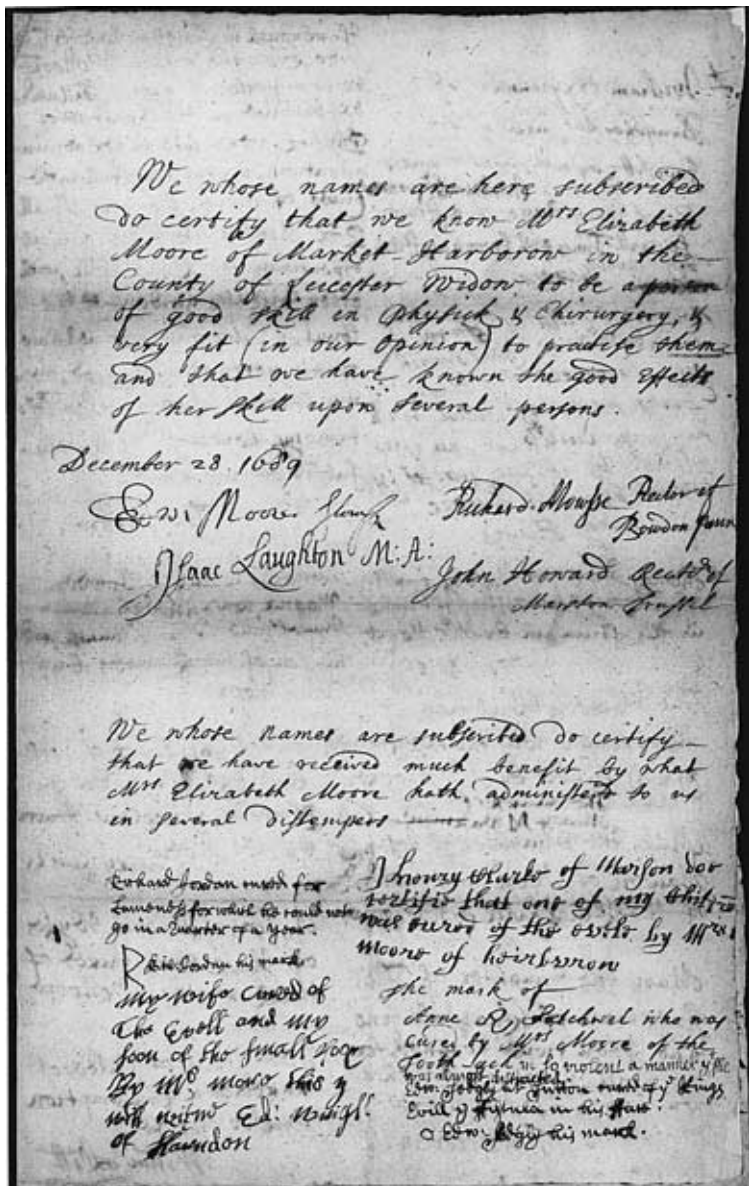 We whose names are here subscribed
do certify that we know Mrs Elizabeth
Moore of Market-Harborow in the
County of Leicester Widow to be a person
of good skill in Physick & Chirurgery, &
very fit (in our opinion) to practise them
and that we have known the good effects
of her skill upon several persons.
December 28. 1689
Edw: Moore
Richard Rector of
Bowdon
Isaac Laughton M: A:
John Howard of
Marston Trussel
We whose names are subscribed do certify
that we have received much benefit by what
Mrs Elizabeth Moore hath administerd to us
in several distempers
Jordan cured for
Lameness for which he could not
go in a Quarter of a year.
Jordan his mark
My wife Cured of
The Evell and my
soon of the small pox
By Mrs more this
Ed:
of
I of do
certifie that one of my
was cured of the evile by Mrs
Moore of
The mark of
Anne R who was
Cured by Mrs Moore of the
Tooth-ach in so violent a manner
was almost distracted
Edw: cured of ye Kings
Evill & in his
Edw: his mark.